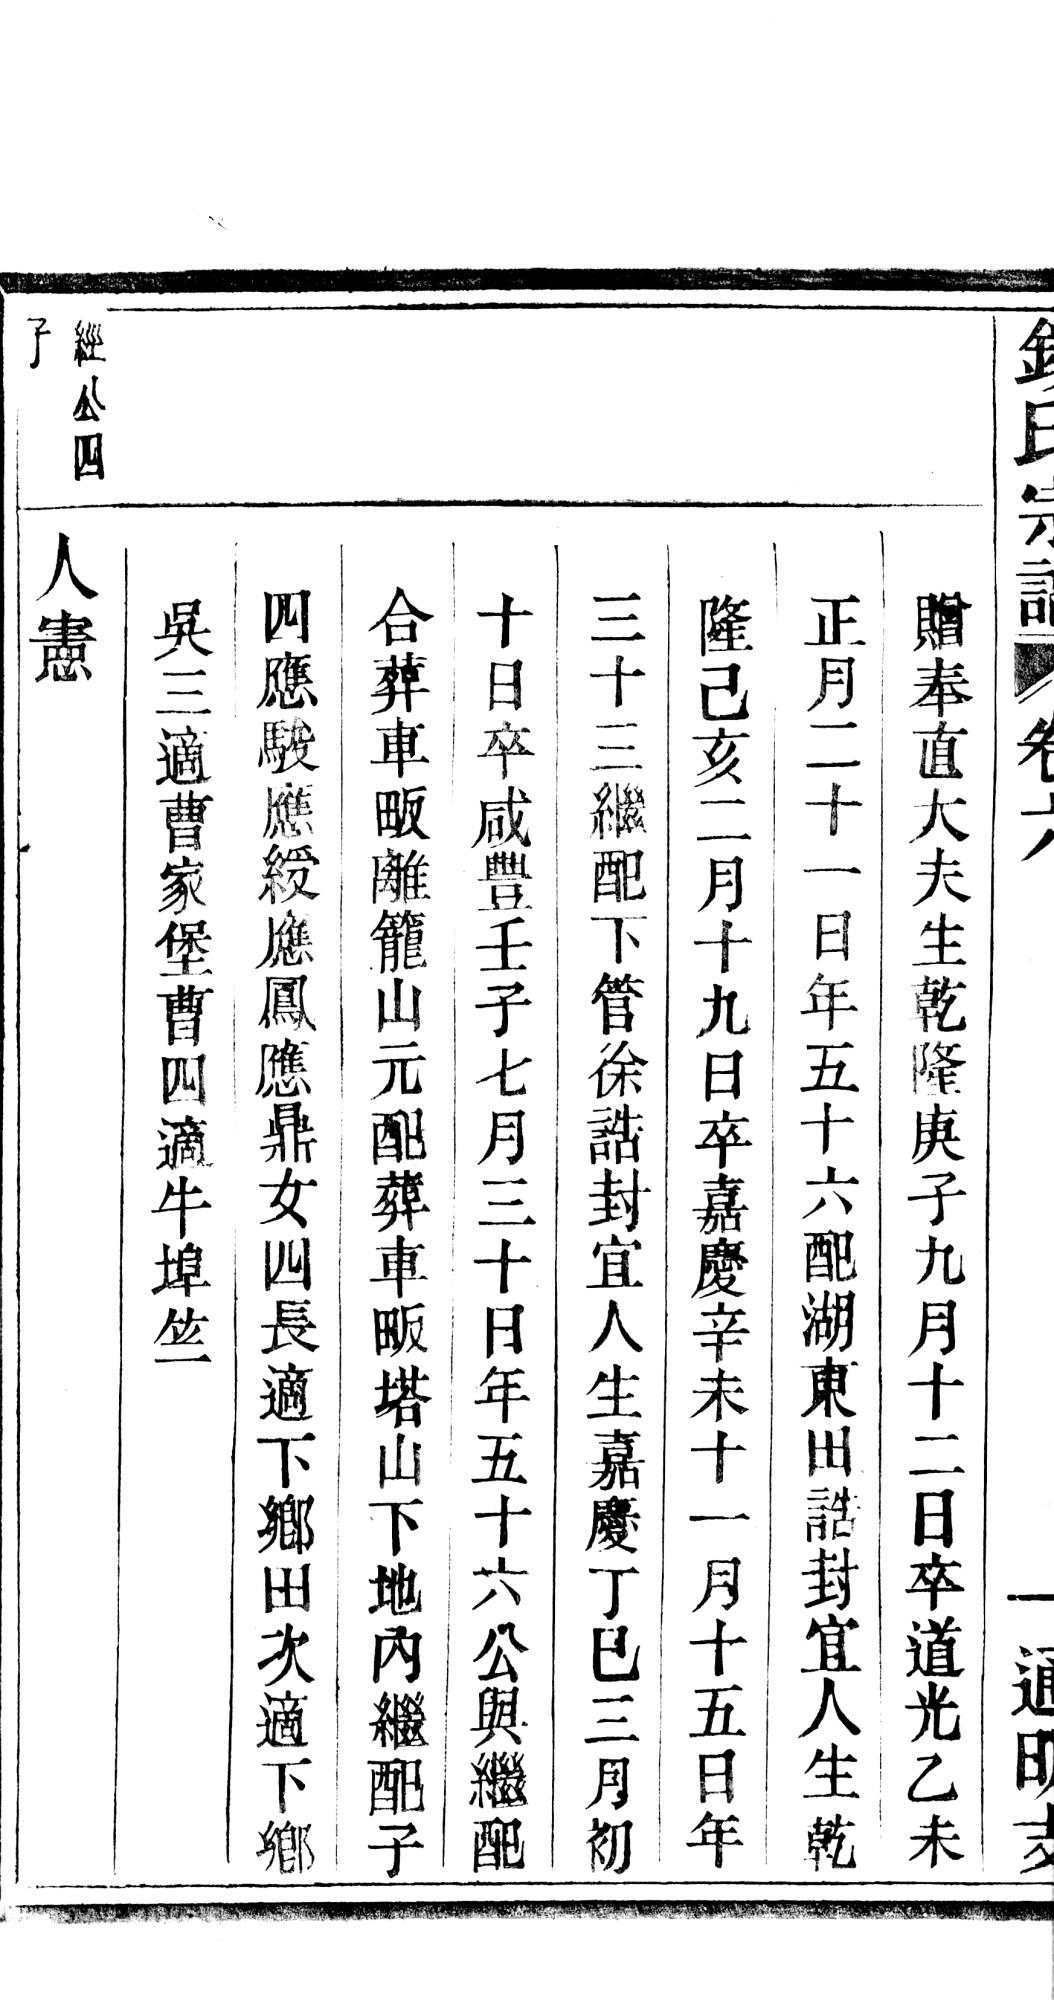 氏宗譜 卷六 一 通明支
贈奉直大夫生乾隆庚子九月十二日卒道光乙未
正月二十一日年五十六配湖東田誥封宜人生乾
隆己亥二月十九日卒嘉慶辛未十一月十五日年
三十三繼配下管徐誥封宜人生嘉慶丁巳三月初
十日卒咸豐壬子七月三十日年五十六公與繼配
合葬車畈離籠山元配葬車畈塔山下地內繼配子
四應駿應綬應鳳應鼎女四長適下鄉田次適下鄉
吳三適曹家堡曹四適牛埠竺
經公四
子
人憲